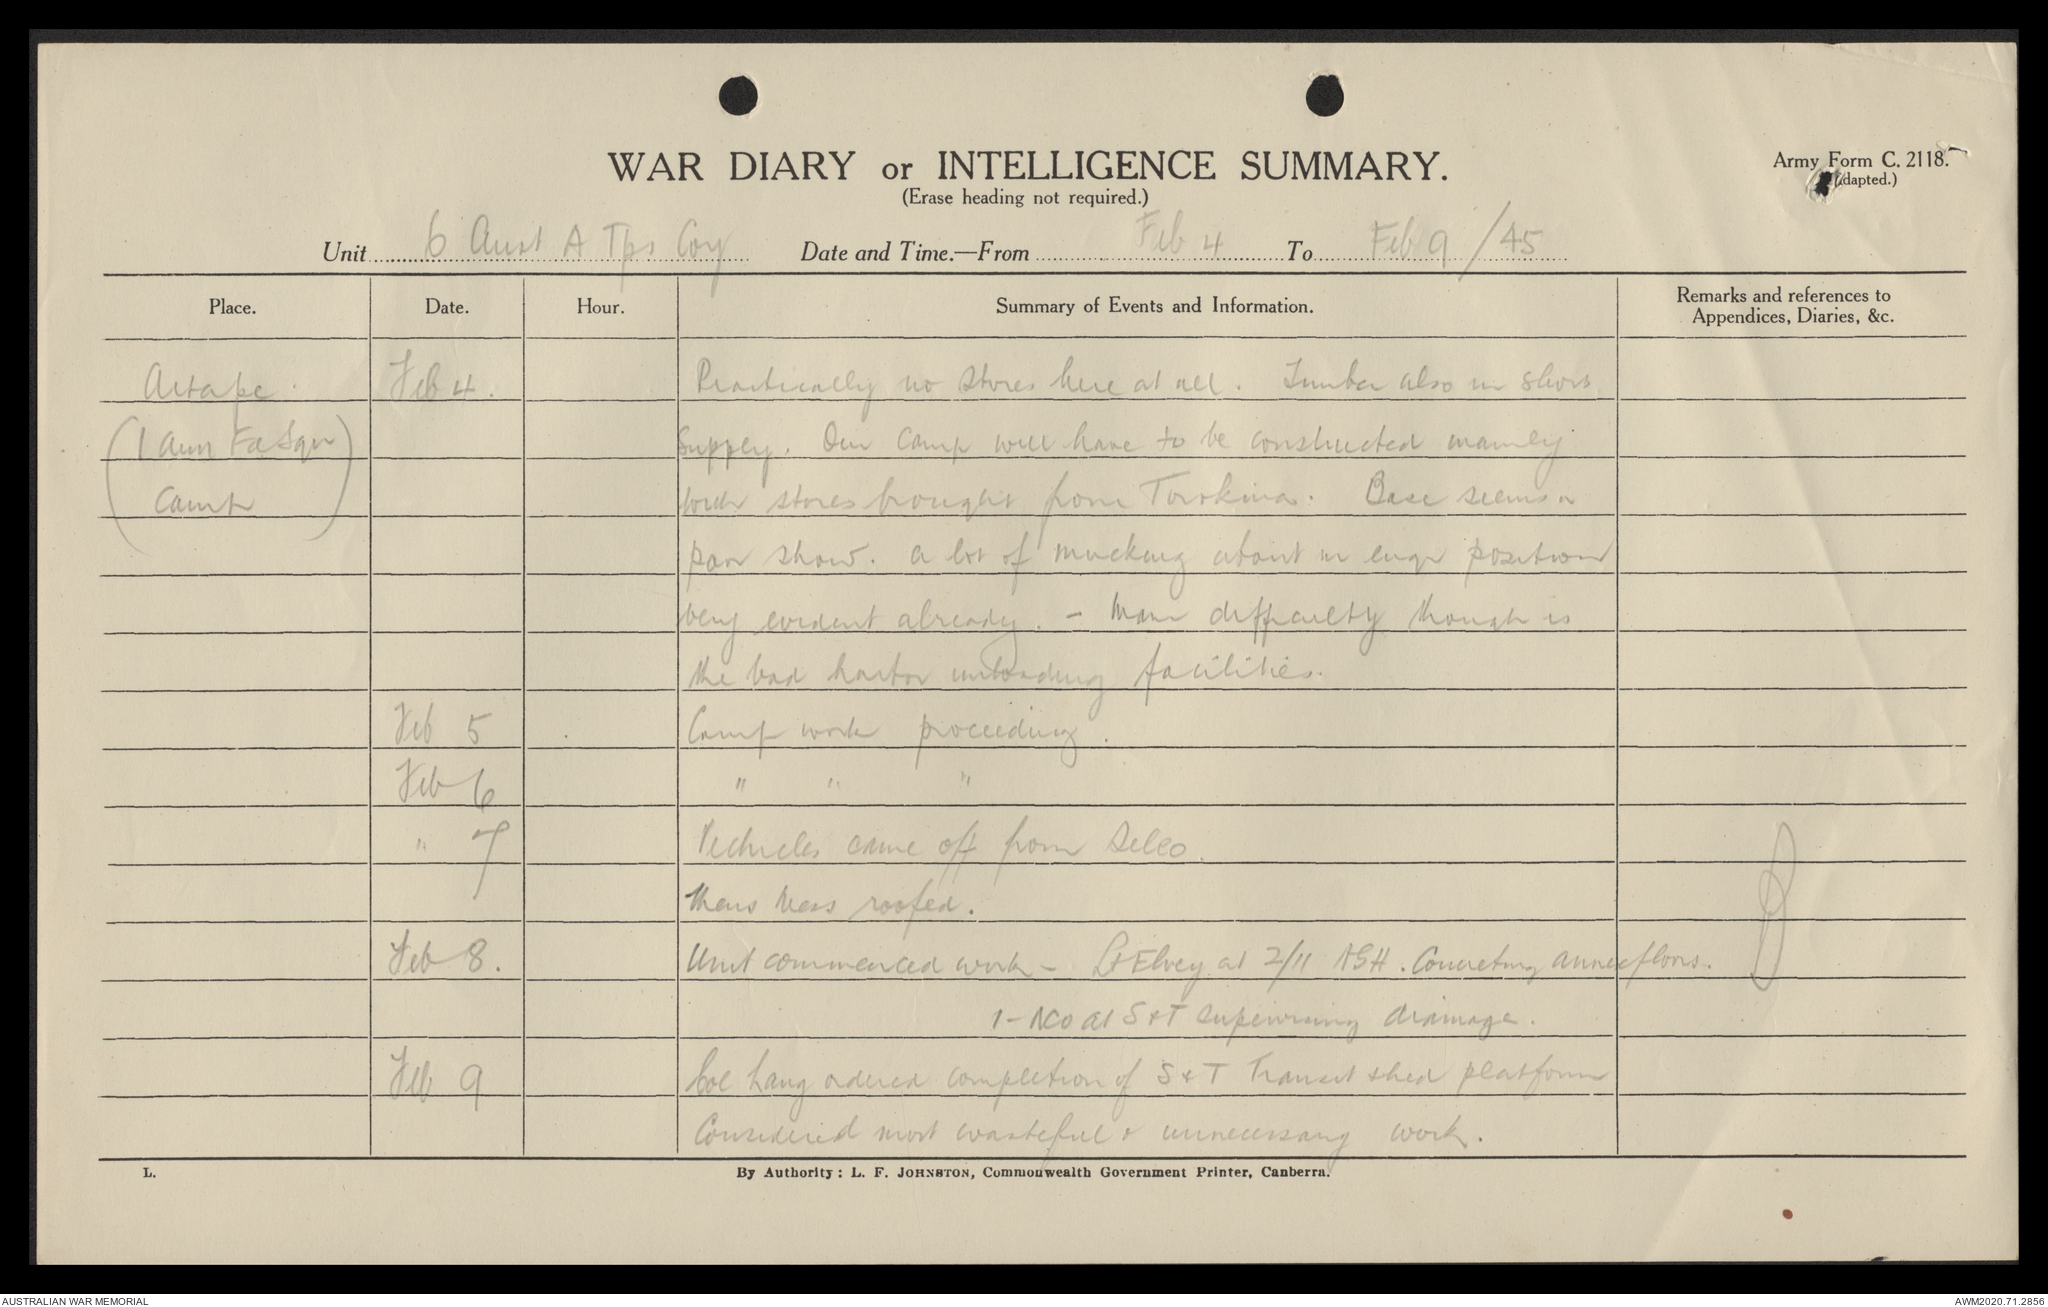 WAR DIARY or INTELLIGENCE SUMMARY.
Army Form C. 2118.
(Adapted.)
(Erase heading not required.)
Unit 6 Aust A Tps Coy Date and Time.—From Feb 4 To Feb 9 /45
Place. Date. Hour. Summary of Events and Information. Remarks and references to
Appendices, Diaries, &c.
Aitape. Feb 4. Practically no stores here at all. Timber also in short
(1 Aust Fd Sqn supply. Our camp will have to be constructed mainly
Camp) with stores brought from Torokina. Base seems a
poor show. A lot of mucking about in engr position
very evident already. - Main difficulty though is
the bad harbor unloading facilities.
Feb 5 Camp work proceeding.
Feb 6 " " "
" 7 Vechicles came off from
Mens Mess roofed.
Feb 8. Unit commenced work - Lt Elvey at 2/11 AGH. Concreting annexe floors.
1 - NCO at S & T supervising drainage.
Feb 9 Col Lang ordered completion of S & T Transit shed platform
Considered most wasteful & unnecessary work.
L. By Authority: L. F. JOHNSTON, Commonwealth Government Printer, Canberra.
AUSTRALIAN WAR MEMORIAL AWM2020.71.2856